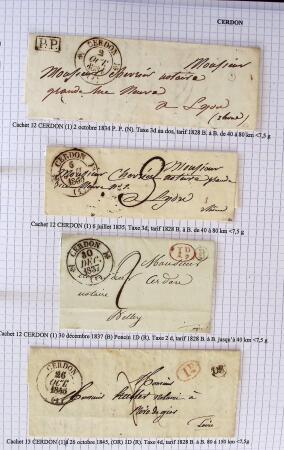 CERDON
P.P.
CERDON
2
OCT
1834
(1)
Monsieur
Monsieur
notaire
grande rue
à Lyon
(Rhône)
Cachet 12 CERDON (1) 2 octobre 1834 P. P. (N). Taxe 3d au dos, tarif 1828 B. à B. de 40 à 80 km <7,5 g
CERDON
6
1835
(1)
3
Monsieur
Monsieur
notaire
Lyon
Rhône
Cachet 12 CERDON (1) 6 juillet 1835. Taxe 3d, tarif 1828 B. à B. de 40 à 80 km <7,5 g
CERDON
30
DEC
1837
(1)
1D
B
2
Monsieur
Cerdon
notaire
Belley
Cachet 12 CERDON (1) 30 décembre 1837 (B) Poncin 1D (R). Taxe 2 d, tarif 1828 B. à B. jusqu'à 40 km <7,5 g
CERDON
26
OCT
1845
(1)
1D
Monsieur
Monsieur
notaire à
Rive de gier
Loire
Cachet 13 CERDON (1) 26 octobre 1845, (OR) 1D (R). Taxe 4d, tarif 1828 B. à B. 80 à 150 km <7,5g